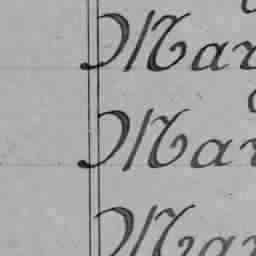 Mar
Mar
Mar